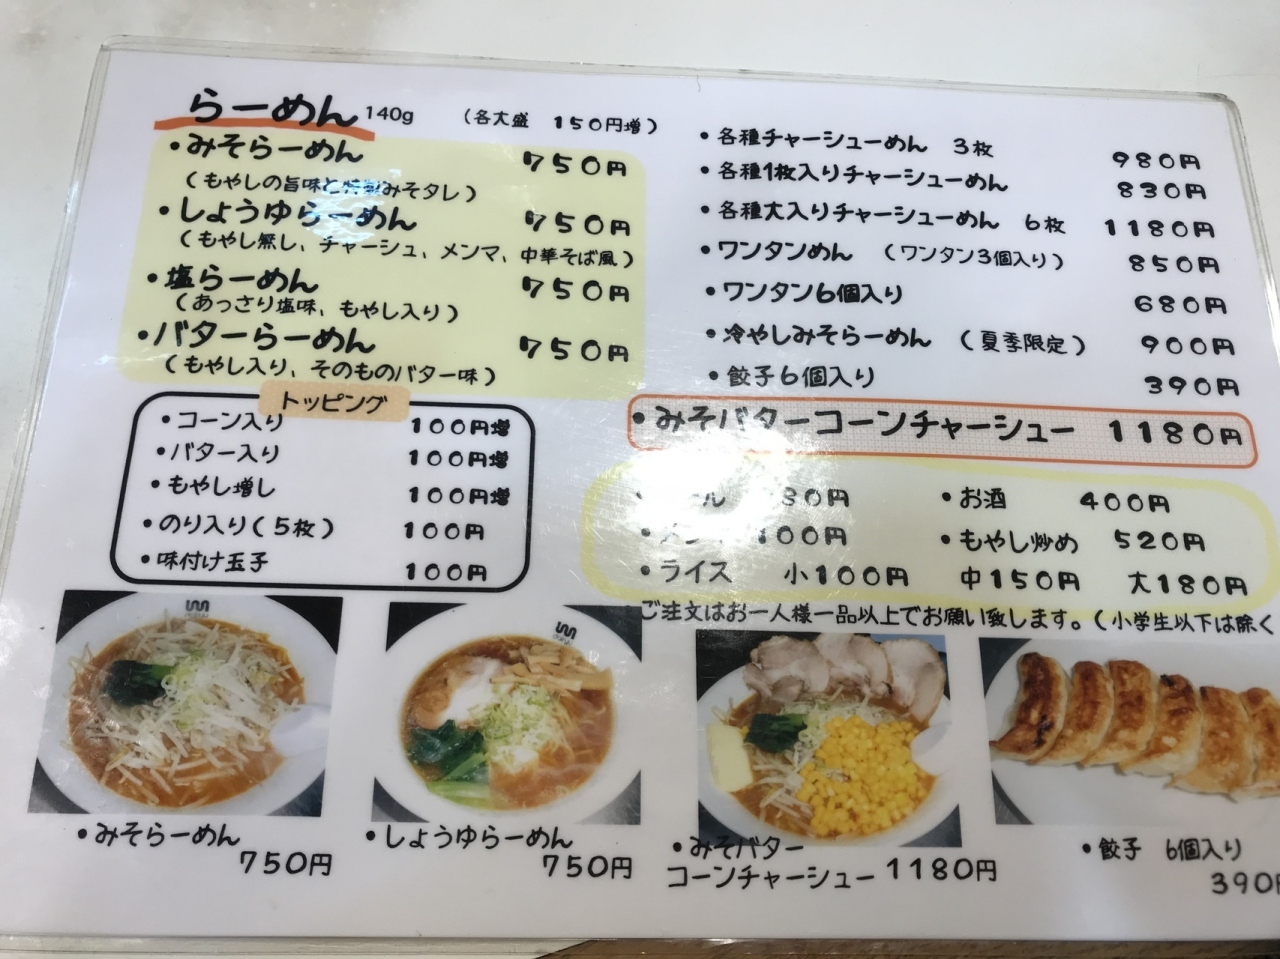 らーめん 140g (各大盛 150円増)
・みそらーめん 750円
(もやしの旨味と特製みそタレ)
・しょうゆらーめん 750円
(もやし無し、チャーシュ、メンマ、中華そば風)
・塩らーめん 750円
(あっさり塩味、もやし入り)
・バターらーめん 750円
(もやし入り、そのものバター味)
トッピング
・コーン入り 100円増
・バター入り 100円増
・もやし増し 100円増
・のり入り(5枚) 100円
・味付け玉子 100円
・各種チャーシューめん 3枚 980円
・各種1枚入りチャーシューめん 830円
・各種大入りチャーシューめん 6枚 1180円
・ワンタンめん (ワンタン3個入り) 850円
・ワンタン6個入り 680円
・冷やしみそらーめん (夏季限定) 900円
・餃子6個入り 390円
・みそバターコーンチャーシュー 1180円
ール 80円 ・お酒 400円
100円 ・もやし炒め 520円
・ライス 小100円 中150円 大180円
ご注文はお一人様一品以上でお願い致します。(小学生以下は除く
・みそらーめん
750円
・しょうゆらーめん
750円
・みそバター
コーンチャーシュー 1180円
・餃子 6個入り
390円